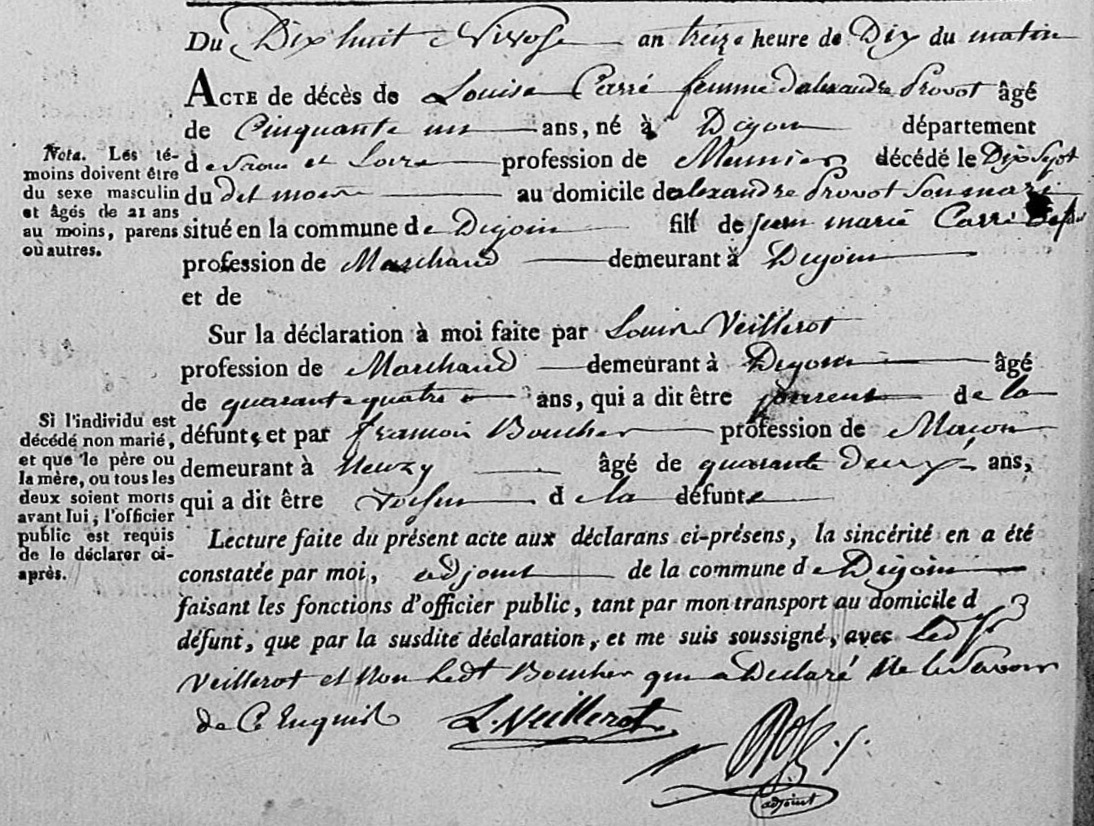 Du Dix huit Nivose an treize heure de Dix du matin
ACTE de décès de Louise Carré femme d'alexandre Provot âgé
de Cinquante un ans, né à Digoin département
de Saone et Loire profession de Meunier décédé le Dix Sept
du dit mois au domicile de alexandre Provot Son mari
situé en la commune de Digoin fille de Jean marie Carré
profession de Marchand demeurant à Digoin
et de
Sur la déclaration à moi faite par Louis Veillerot
profession de Marchand demeurant à Digoin âgé
de quarante quatre ans, qui a dit être parent de la
défunte et par francois Boucher profession de Maçon
demeurant à Neuzy âgé de quarante deux ans,
qui a dit être voisin de la défunte
Lecture faite du présent acte aux déclarans ci-présens, la sincérité en a été
constatée par moi, adjoint de la commune de Digoin
faisant les fonctions d'officier public, tant par mon transport au domicile d
défunt, que par la susdite déclaration, et me suis soussigné, avec led Sr
Veillerot et Non ledt Boucher qui a Declaré Ne le Savoir
de Ce Enquis
L. Veillerot
adjoint
Nota. Les té-
moins doivent être
du sexe masculin
et âgés de 21 ans
au moins, parens
où autres.
Si l'individu est
décédé non marié,
et que le père ou
la mère, ou tous les
deux soient morts
avant lui, l'officier
public est requis
de le déclarer ci-
après.